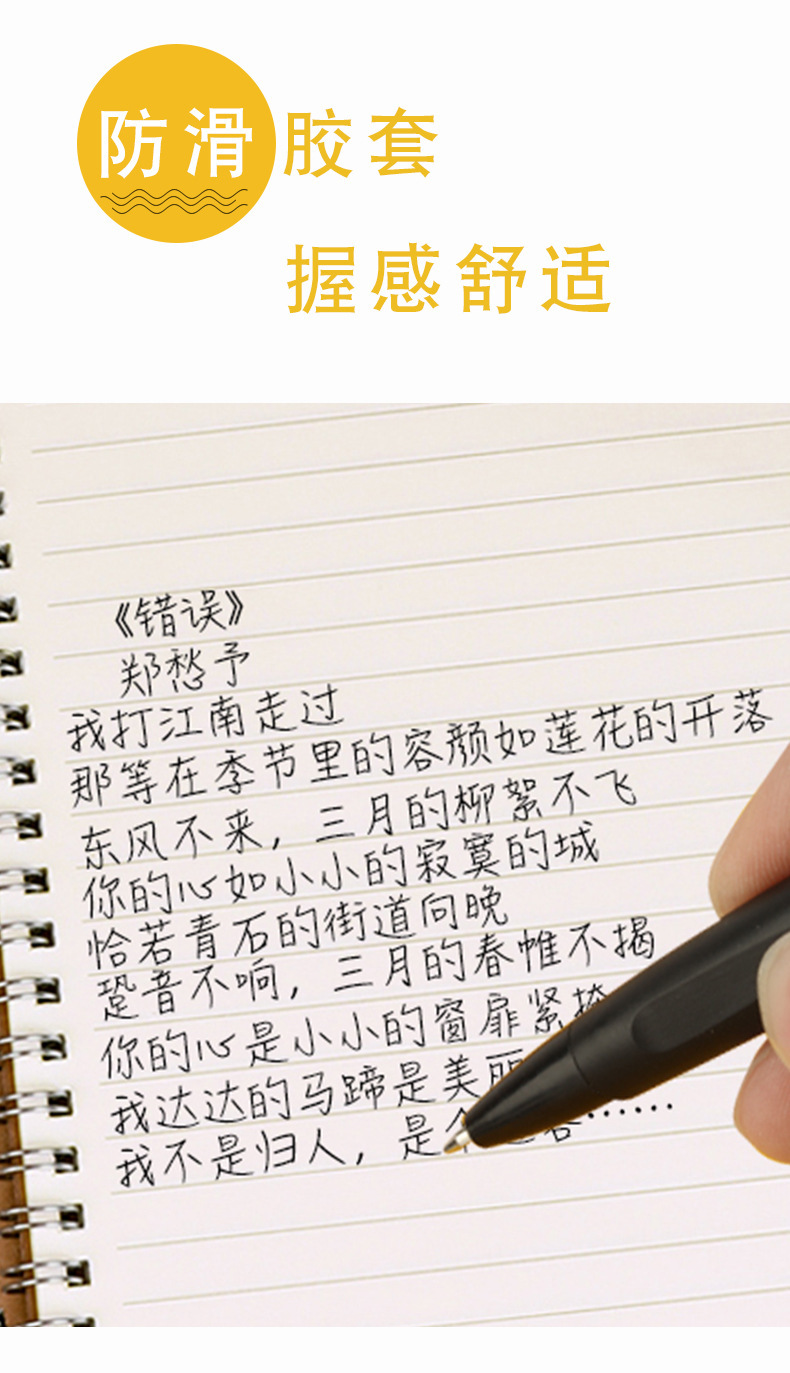 防滑胶套
握感舒适
《错误》
郑愁予
我打江南走过
那等在季节里的容颜如莲花的开落
东风不来，三月的柳絮不飞
你的心如小小的寂寞的城
恰若青石的街道向晚
跫音不响，三月的春帷不揭
你的心是小小的窗扉紧掩
我达达的马蹄是美丽
我不是归人，是个过客……